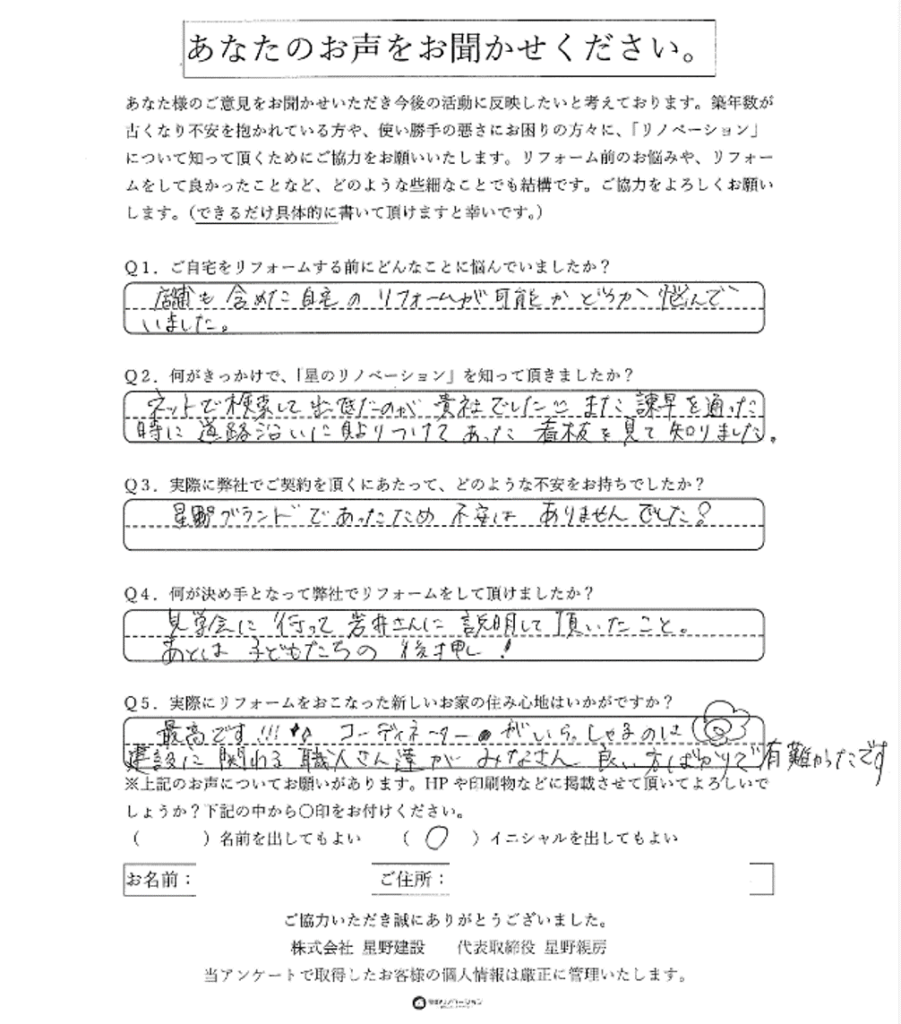 あなたのお声をお聞かせください。
あなた様のご意見をお聞かせいただき今後の活動に反映したいと考えております。築年数が
古くなり不安を抱かれている方や、使い勝手の悪さにお困りの方々に、「リノベーション」
について知って頂くためにご協力をお願いいたします。リフォーム前のお悩みや、リフォー
ムをして良かったことなど、どのような些細なことでも結構です。ご協力をよろしくお願い
します。（できるだけ具体的に書いて頂けますと幸いです。）
Q1．ご自宅をリフォームする前にどんなことに悩んでいましたか？
店舗も含めた自宅のリフォームが可能かどうか悩んで
いました。
Q2．何がきっかけで、「星のリノベーション」を知って頂きましたか？
ネットで検索して出てきたのが貴社でした また諫早を通った
時に道路沿いに貼りつけてあった看板を見て知りました。
Q3．実際に弊社でご契約を頂くにあたって、どのような不安をお持ちでしたか？
星野ブランドであったため不安はありませんでした？
Q4．何が決め手となって弊社でリフォームをして頂けましたか？
見学会に行って岩井さんに説明して頂いたこと。
あとは子どもたちの後押し！
Q5．実際にリフォームをおこなった新しいお家の住み心地はいかがですか？
最高です!!! コーディネーターがいらっしゃるのは
建設に関わる職人さん達がみなさん良い方ばかりで有難かったです
※上記のお声についてお願いがあります。HPや印刷物などに掲載させて頂いてよろしいで
しょうか？下記の中から〇印をお付けください。
（　　　）名前を出してもよい　（ 〇 ）イニシャルを出してもよい
お名前：　ご住所：
ご協力いただき誠にありがとうございました。
株式会社 星野建設　代表取締役 星野親房
当アンケートで取得したお客様の個人情報は厳正に管理いたします。